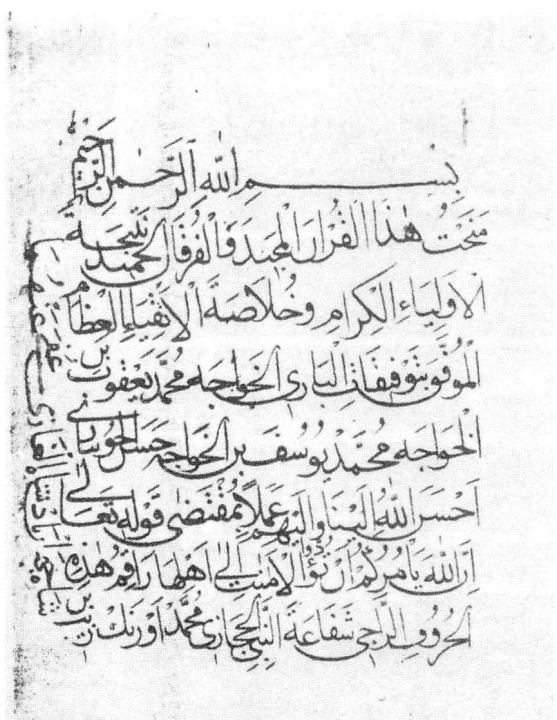 بسم الله الرحمن الرحيم
منحت هٰذا القران المجيد والفرقان الحميد نتيجة
الاولياء الكرام وخلاصة الاتقياء العظام
الموفق بتوفيقات الباري الخواجه محمد يعقوب بن
الخواجه محمد يوسف بن الخواجه حسن
احسن الله الينا واليهم عملا بمقتضى قوله تعالى
ان الله يامركم ان تؤدوا الامنت الى اهلها راقم هذه
الحروف الراجي شفاعة النبي الحجازي محمد اورنك زيب بن